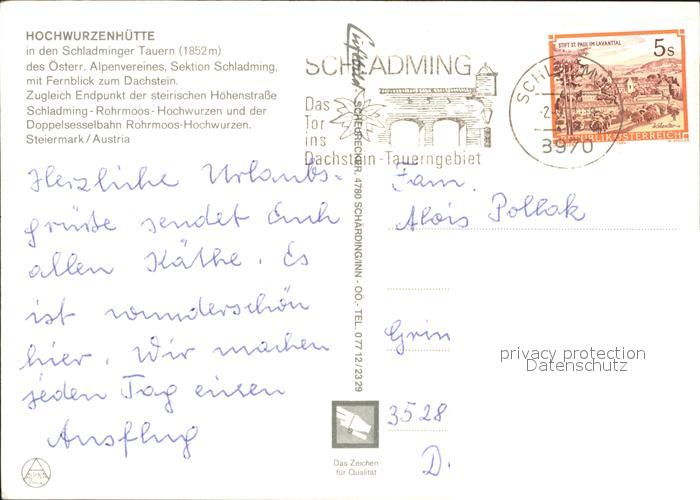 HOCHWURZENHÜTTE
in den Schladminger Tauern (1852 m)
des Österr. Alpenvereines, Sektion Schladming,
mit Fernblick zum Dachstein.
Zugleich Endpunkt der steirischen Höhenstraße
Schladming - Rohrmoos - Hochwurzen und der
Doppelsesselbahn Rohrmoos - Hochwurzen.
Steiermark / Austria
Herzliche Urlaubs-
grüße sendet Euch
allen Käthe. Es
ist wunderschön
hier. Wir machen
jeden Tag einen
Ausflug
SCHEURECKER, 4780 SCHÄRDING/INN - OÖ. - TEL. 0 77 12 / 23 29
SCHLADMING
Das
Tor
ins
Dachstein-Tauerngebiet
SCHLADMING
8970
STIFT ST. PAUL IM LAVANTTAL
5 S
REPUBLIK ÖSTERREICH
Fam.
Alois Pollak
Grin
3528
D.
privacy protection
Datenschutz
Das Zeichen
für Qualität